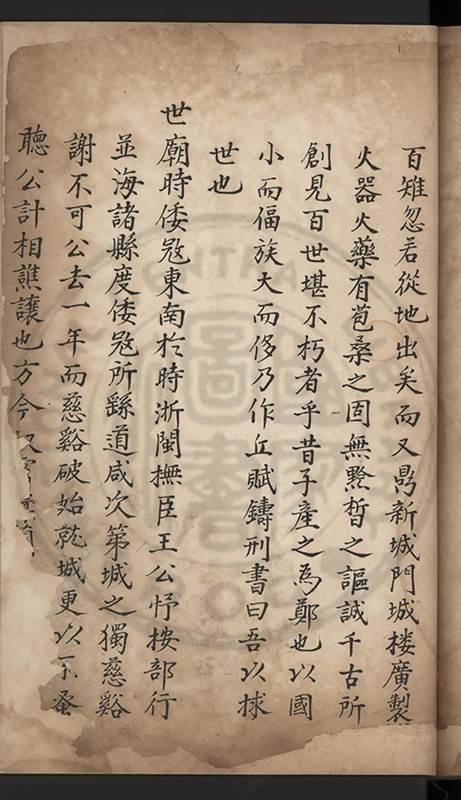 百雉忽若從地出矣而又鼎新城門城楼廣製
火器火藥有苞桑之固無黔晳之謳誠千古所
創見百世堪不朽者乎昔子產之為鄭也以國
小而偪族大而侈乃作丘賦鑄刑書曰吾以捄
世也
世廟時倭寇東南於時浙閩撫臣王公忬按部行
並海諸縣度倭寇所繇道咸次第城之獨慈谿
謝不可公去一年而慈谿破始就城更以不蚤
聽公計相譙讓也方今